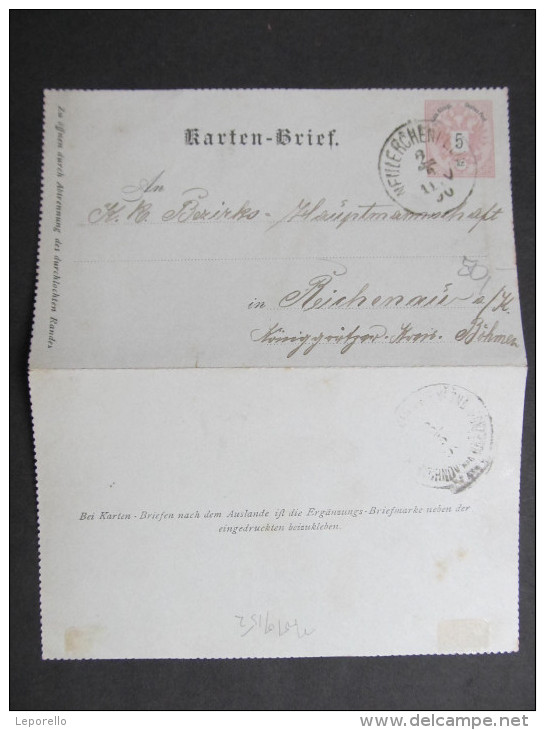 Karten-Brief.
NEULERCHENFELD
5
An
K. K. Bezirks-Hauptmannschaft
50
in Reichenau a/K.
Königgrätzer-Kreis. Böhmen
Zu öffnen durch Abtrennung des durchlochten Randes
Bei Karten-Briefen nach dem Auslande ist die Ergänzungs-Briefmarke neben der
eingedruckten beizukleben.
Leporello
www.delcampe.net